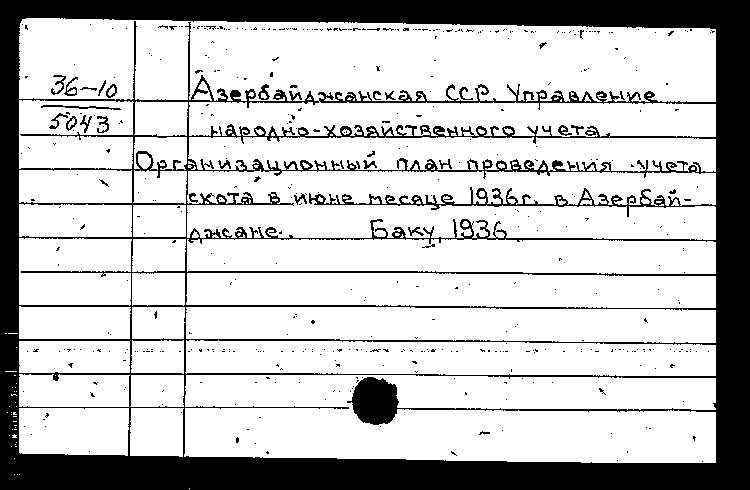 36-10
5043
Азербайджанская ССР. Управление
народно-хозяйственного учета.
Организационный план проведения учета
скота в июне месяце 1936г. в Азербай-
джане. Баку, 1936